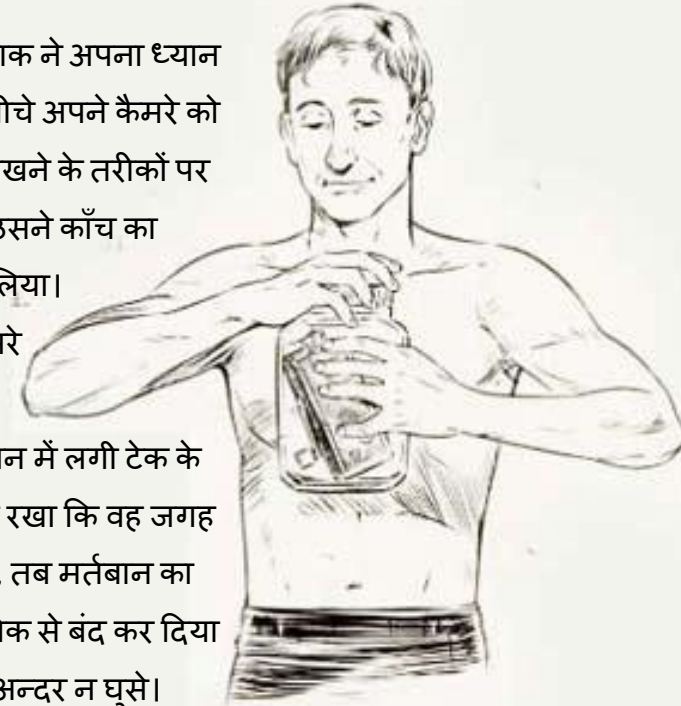 ाक ने अपना ध्यान
ीचे अपने कैमरे को
खने के तरीकों पर
उसने काँच का
लिया।
रे
ान में लगी टेक के
रखा कि वह जगह
तब मर्तबान का
ीक से बंद कर दिया
अन्दर न घुसे।